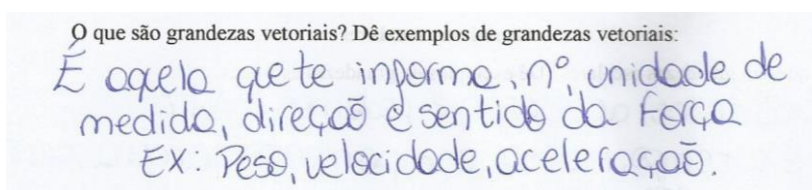 O que são grandezas vetoriais? Dê exemplos de grandezas vetoriais:
É aquela que te informa, nº, unidade de
medida, direçaõ e sentido da força
EX: Peso, velocidade, aceleraçaõ.